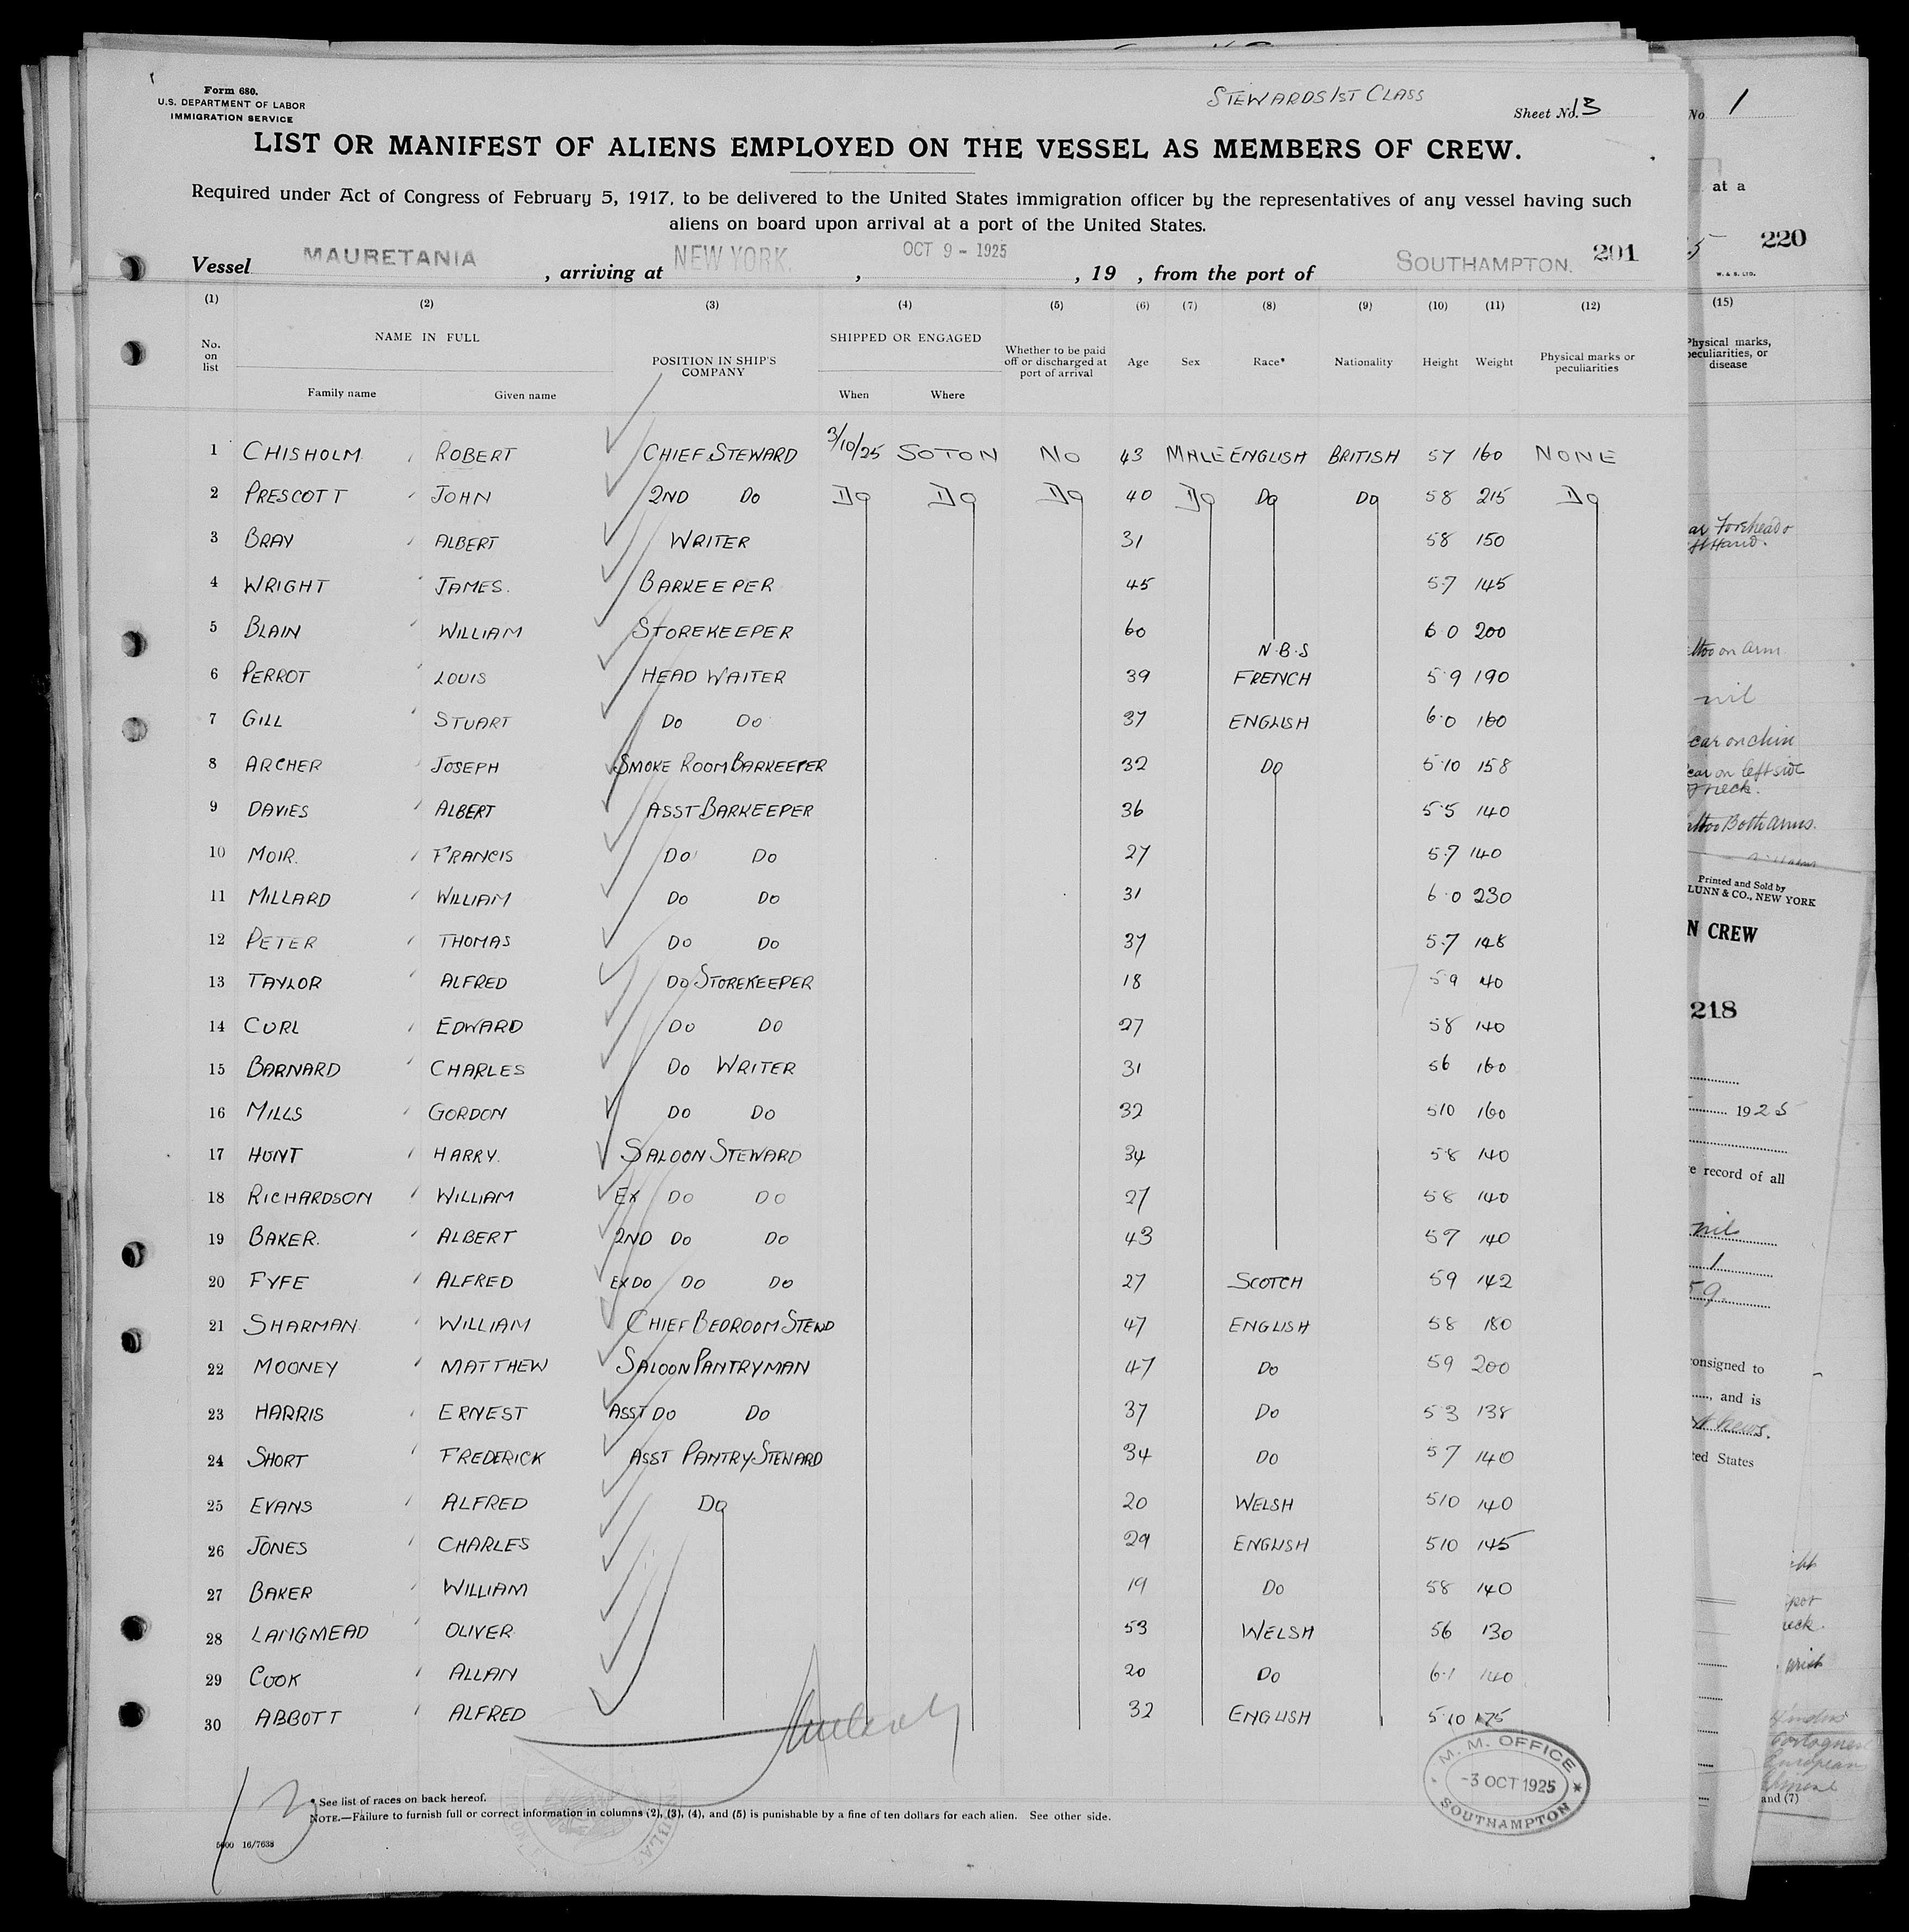 Form 680.
U.S. DEPARTMENT OF LABOR
IMMIGRATION SERVICE
STEWARDS 1ST CLASS
Sheet No. 13
LIST OR MANIFEST OF ALIENS EMPLOYED ON THE VESSEL AS MEMBERS OF CREW.
Required under Act of Congress of February 5, 1917, to be delivered to the United States immigration officer by the representatives of any vessel having such
aliens on board upon arrival at a port of the United States.
Vessel MAURETANIA, arriving at NEW YORK., OCT 9 - 1925, 19 , from the port of SOUTHAMPTON. 201
(1) (2) (3) (4) (5) (6) (7) (8) (9) (10) (11) (12)
No. on list NAME IN FULL Family name Given name POSITION IN SHIP'S COMPANY SHIPPED OR ENGAGED When Where Whether to be paid off or discharged at port of arrival Age Sex Race* Nationality Height Weight Physical marks or peculiarities
1 CHISHOLM ROBERT CHIEF STEWARD 3/10/25 SOTON NO 43 MALE ENGLISH BRITISH 57 160 NONE
2 PRESCOTT JOHN 2ND DO DO DO DO 40 DO DO DO 58 215 DO
3 BRAY ALBERT WRITER 31 58 150
4 WRIGHT JAMES. BARKEEPER 45 5.7 145
5 BLAIN WILLIAM STOREKEEPER 60 6 0 200
N.B.S
6 PERROT LOUIS HEAD WAITER 39 FRENCH 5.9 190
7 GILL STUART DO DO 37 ENGLISH 6.0 160
8 ARCHER JOSEPH SMOKE ROOM BARKEEPER 32 DO 5.10 158
9 DAVIES ALBERT ASST BARKEEPER 36 5.5 140
10 MOIR. FRANCIS DO DO 27 5.7 140
11 MILLARD WILLIAM DO DO 31 6.0 230
12 PETER THOMAS DO DO 37 5.7 148
13 TAYLOR ALFRED DO STOREKEEPER 18 59 40
14 CURL EDWARD DO DO 27 58 140
15 BARNARD CHARLES DO WRITER 31 56 160
16 MILLS GORDON DO DO 32 510 160
17 HUNT HARRY. SALOON STEWARD 34 58 140
18 RICHARDSON WILLIAM EX DO DO 27 58 140
19 BAKER. ALBERT 2ND DO DO 43 57 140
20 FYFE ALFRED EX DO DO DO 27 SCOTCH 59 142
21 SHARMAN WILLIAM CHIEF BEDROOM STEWD 47 ENGLISH 58 180
22 MOONEY MATTHEW SALOON PANTRYMAN 47 DO 59 200
23 HARRIS ERNEST ASST DO DO 37 DO 53 138
24 SHORT FREDERICK ASST PANTRY STEWARD 34 DO 57 140
25 EVANS ALFRED DO 20 WELSH 510 140
26 JONES CHARLES 29 ENGLISH 510 145
27 BAKER WILLIAM 19 DO 58 140
28 LANGMEAD OLIVER 53 WELSH 56 130
29 COOK ALLAN 20 DO 6.1 140
30 ABBOTT ALFRED 32 ENGLISH 5.10 175
M. M. OFFICE
-3 OCT 1925
SOUTHAMPTON
* See list of races on back hereof.
NOTE.—Failure to furnish full or correct information in columns (2), (3), (4), and (5) is punishable by a fine of ten dollars for each alien. See other side.
5000 16/7638
No 1
at a
220
W. & S. LTD.
(15)
Physical marks, peculiarities, or disease
Hand.
on arm
nil
on chin
on left side
neck.
Both arms.
Printed and Sold by
LUNN & CO., NEW YORK
N CREW
218
1925
record of all
nil
1
9.
onsigned to
, and is
States
European
and (7)